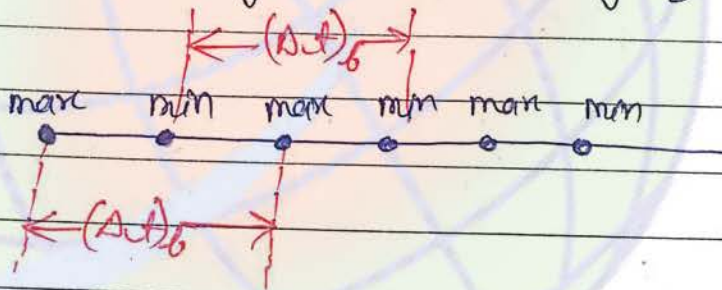 (Δt)b
max min max min max min
(Δt)b